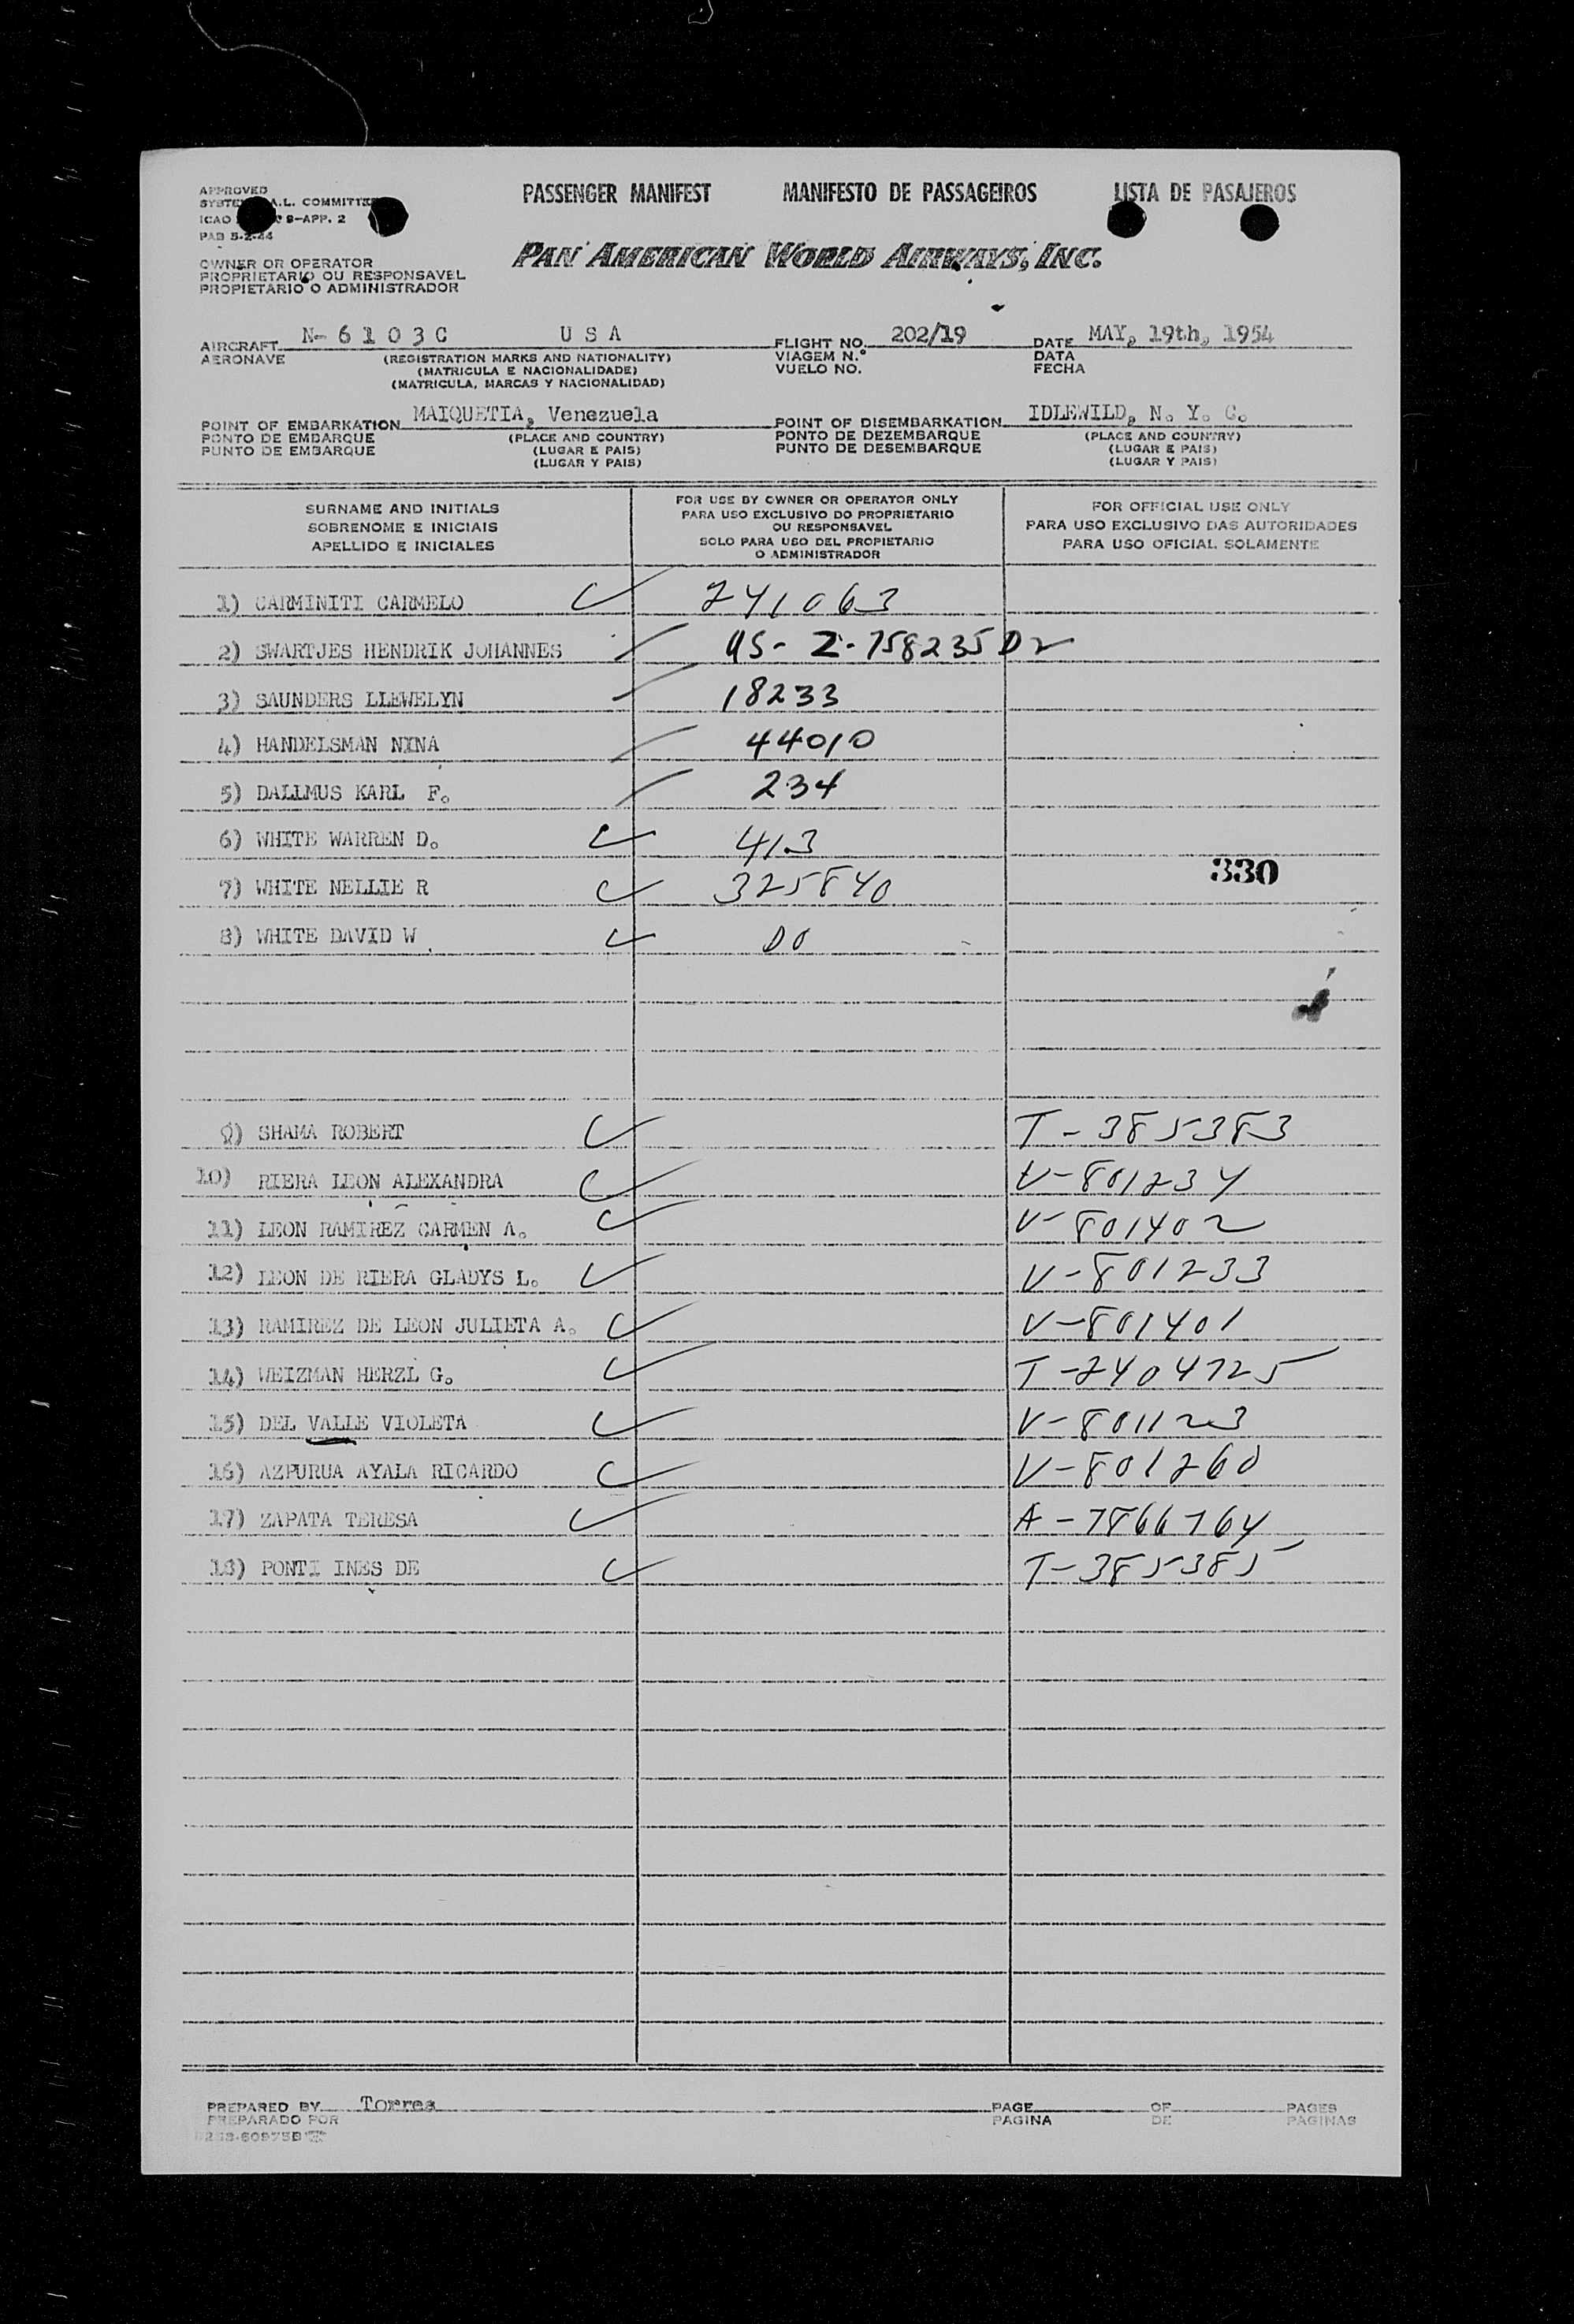 APPROVED
A.L. COMMITTEE
ICAO 9-APP. 2
PAB 5-2-44
OWNER OR OPERATOR
PROPRIETARIO OU RESPONSAVEL
PROPIETARIO O ADMINISTRADOR
PASSENGER MANIFEST MANIFESTO DE PASSAGEIROS LISTA DE PASAJEROS
PAN AMERICAN WORLD AIRWAYS, INC.
AIRCRAFT N-6103C USA FLIGHT NO. 202/19 DATE MAY, 19th, 1954
AERONAVE (REGISTRATION MARKS AND NATIONALITY) VIAGEM N.º DATA
(MATRICULA E NACIONALIDADE) VUELO NO. FECHA
(MATRICULA, MARCAS Y NACIONALIDAD)
POINT OF EMBARKATION MAIQUETIA, Venezuela POINT OF DISEMBARKATION IDLEWILD, N. Y. C.
PONTO DE EMBARQUE (PLACE AND COUNTRY) PONTO DE DEZEMBARQUE (PLACE AND COUNTRY)
PUNTO DE EMBARQUE (LUGAR E PAIS) PUNTO DE DESEMBARQUE (LUGAR E PAIS)
(LUGAR Y PAIS) (LUGAR Y PAIS)
SURNAME AND INITIALS
SOBRENOME E INICIAIS
APELLIDO E INICIALES
FOR USE BY OWNER OR OPERATOR ONLY
PARA USO EXCLUSIVO DO PROPRIETARIO
OU RESPONSAVEL
SOLO PARA USO DEL PROPIETARIO
O ADMINISTRADOR
FOR OFFICIAL USE ONLY
PARA USO EXCLUSIVO DAS AUTORIDADES
PARA USO OFICIAL SOLAMENTE
1) CARMINITI CARMELO 241063
2) SWARTJES HENDRIK JOHANNES US-Z-758235 D2
3) SAUNDERS LLEWELYN 18233
4) HANDELSMAN NINA 44010
5) DALLMUS KARL F. 234
6) WHITE WARREN D. 413
7) WHITE NELLIE R 325840
330
8) WHITE DAVID W DO
9) SHAMA ROBERT T-385383
10) RIERA LEON ALEXANDRA V-801234
11) LEON RAMIREZ CARMEN A. V-801402
12) LEON DE RIERA GLADYS L. V-801233
13) RAMIREZ DE LEON JULIETA A. V-801401
14) WEIZMAN HERZL G. T-2404725
15) DEL VALLE VIOLETA V-801123
16) AZPURUA AYALA RICARDO V-801260
17) ZAPATA TERESA A-7866764
18) PONTI INES DE T-385385
PREPARED BY Torres PAGE OF PAGES
PREPARADO POR PAGINA DE PAGINAS